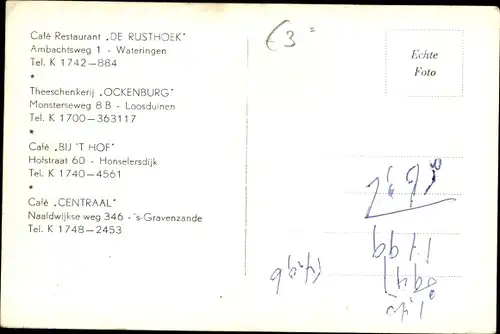 Café Restaurant „DE RUSTHOEK"
Ambachtsweg 1 - Wateringen
Tel. K 1742—884
*
Theeschenkerij „OCKENBURG"
Monsterseweg 8 B - Loosduinen
Tel. K 1700—363117
*
Café „BIJ 'T HOF"
Hofstraat 60 - Honselersdijk
Tel. K 1740—4561
*
Café „CENTRAAL"
Naaldwijkse weg 346 - 's-Gravenzande
Tel. K 1748—2453
€3=
Echte
Foto